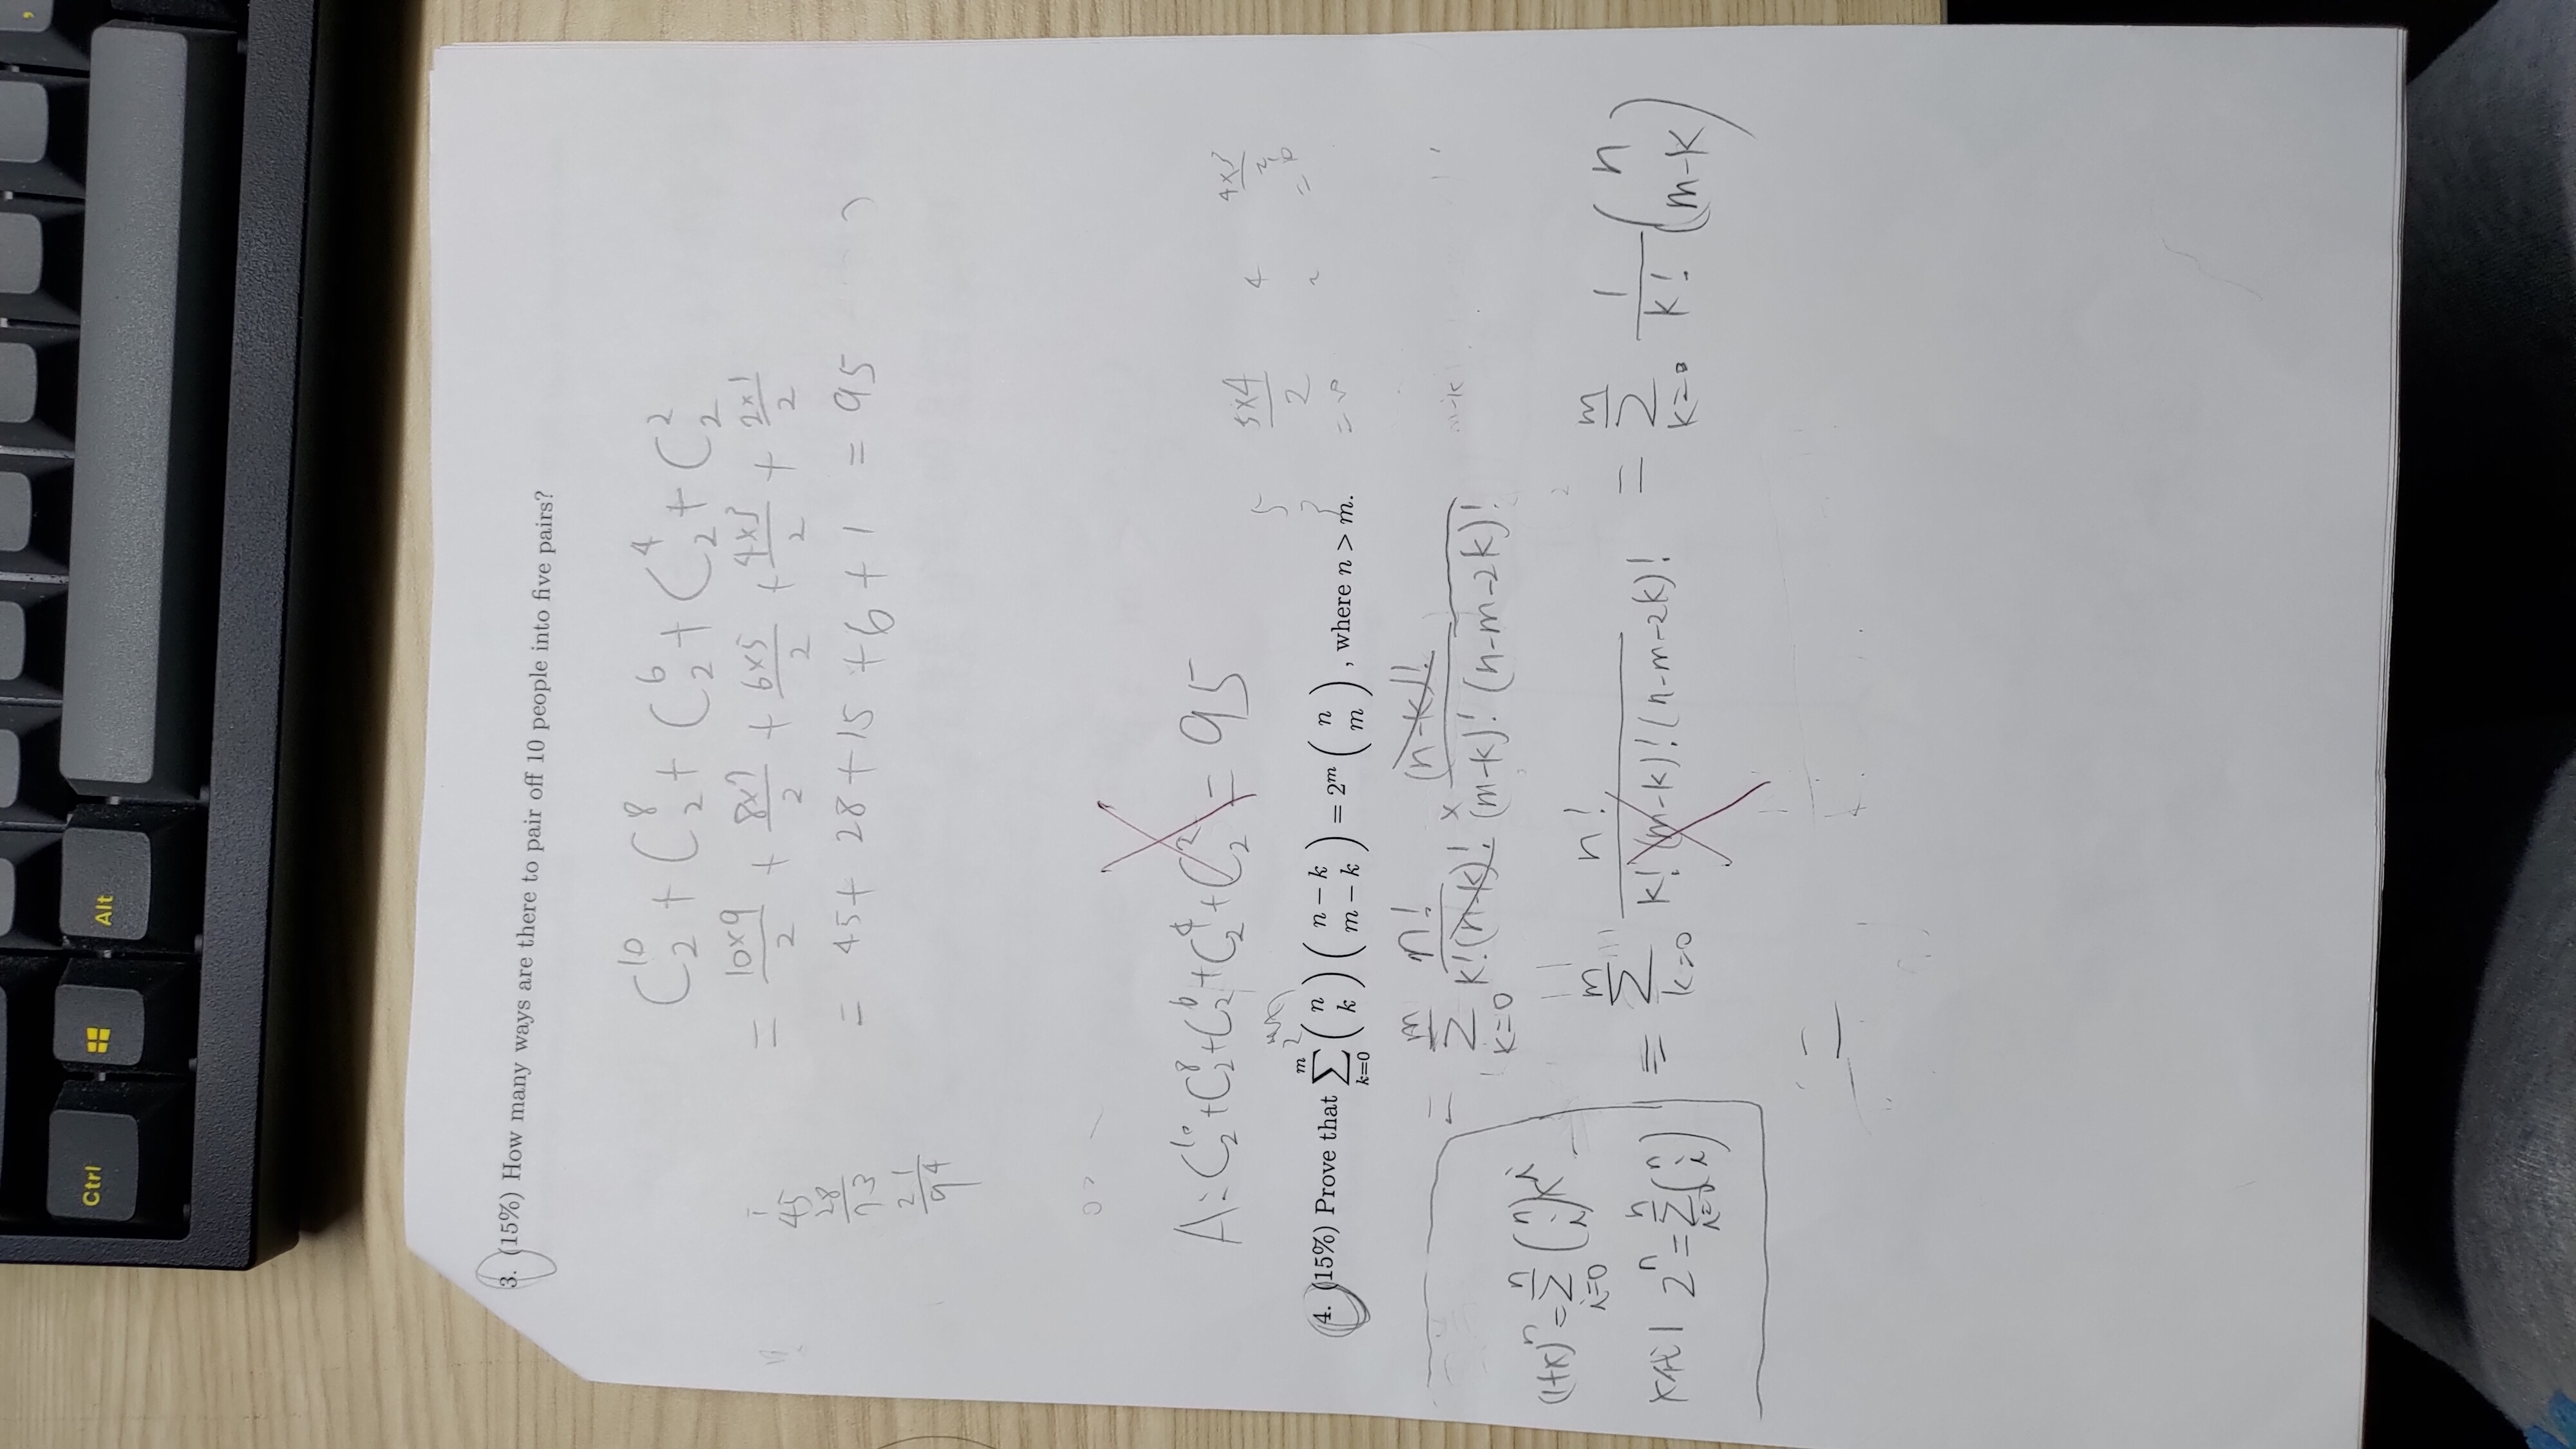 Ctrl Alt ,
3. (15%) How many ways are there to pair off 10 people into five pairs?
C^{10}_2 + C^8_2 + C^6_2 + C^4_2 + C^2_2
= \frac{10×9}{2} + \frac{8×7}{2} + \frac{6×5}{2} + \frac{4×3}{2} + \frac{2×1}{2}
= 45 + 28 + 15 + 6 + 1 = 95
1
45
28
73
21
94
A: C^{10}_2 + C^8_2 + C^6_2 + C^4_2 + C^2_2 = 95
4. (15%) Prove that \sum_{k=0}^{m} \binom{n}{k} \binom{n-k}{m-k} = 2^m \binom{n}{m}, where n > m.
5 \frac{5×4}{2} 4 \frac{4×3}{2}
= \sum_{k=0}^{m} \frac{n!}{k!(n-k)!} × \frac{(n-k)!}{(m-k)!(n-m-2k)!}
(1+x)^n = \sum_{i=0}^{n} \binom{n}{i} x^i
= \sum_{k=0}^{m} \frac{n!}{k!(m-k)!(n-m-2k)!} = \sum_{k=0}^{m} \frac{1}{k!} \binom{n}{m-k}
1 2^n = \sum_{i=0}^{n} \binom{n}{i}
=